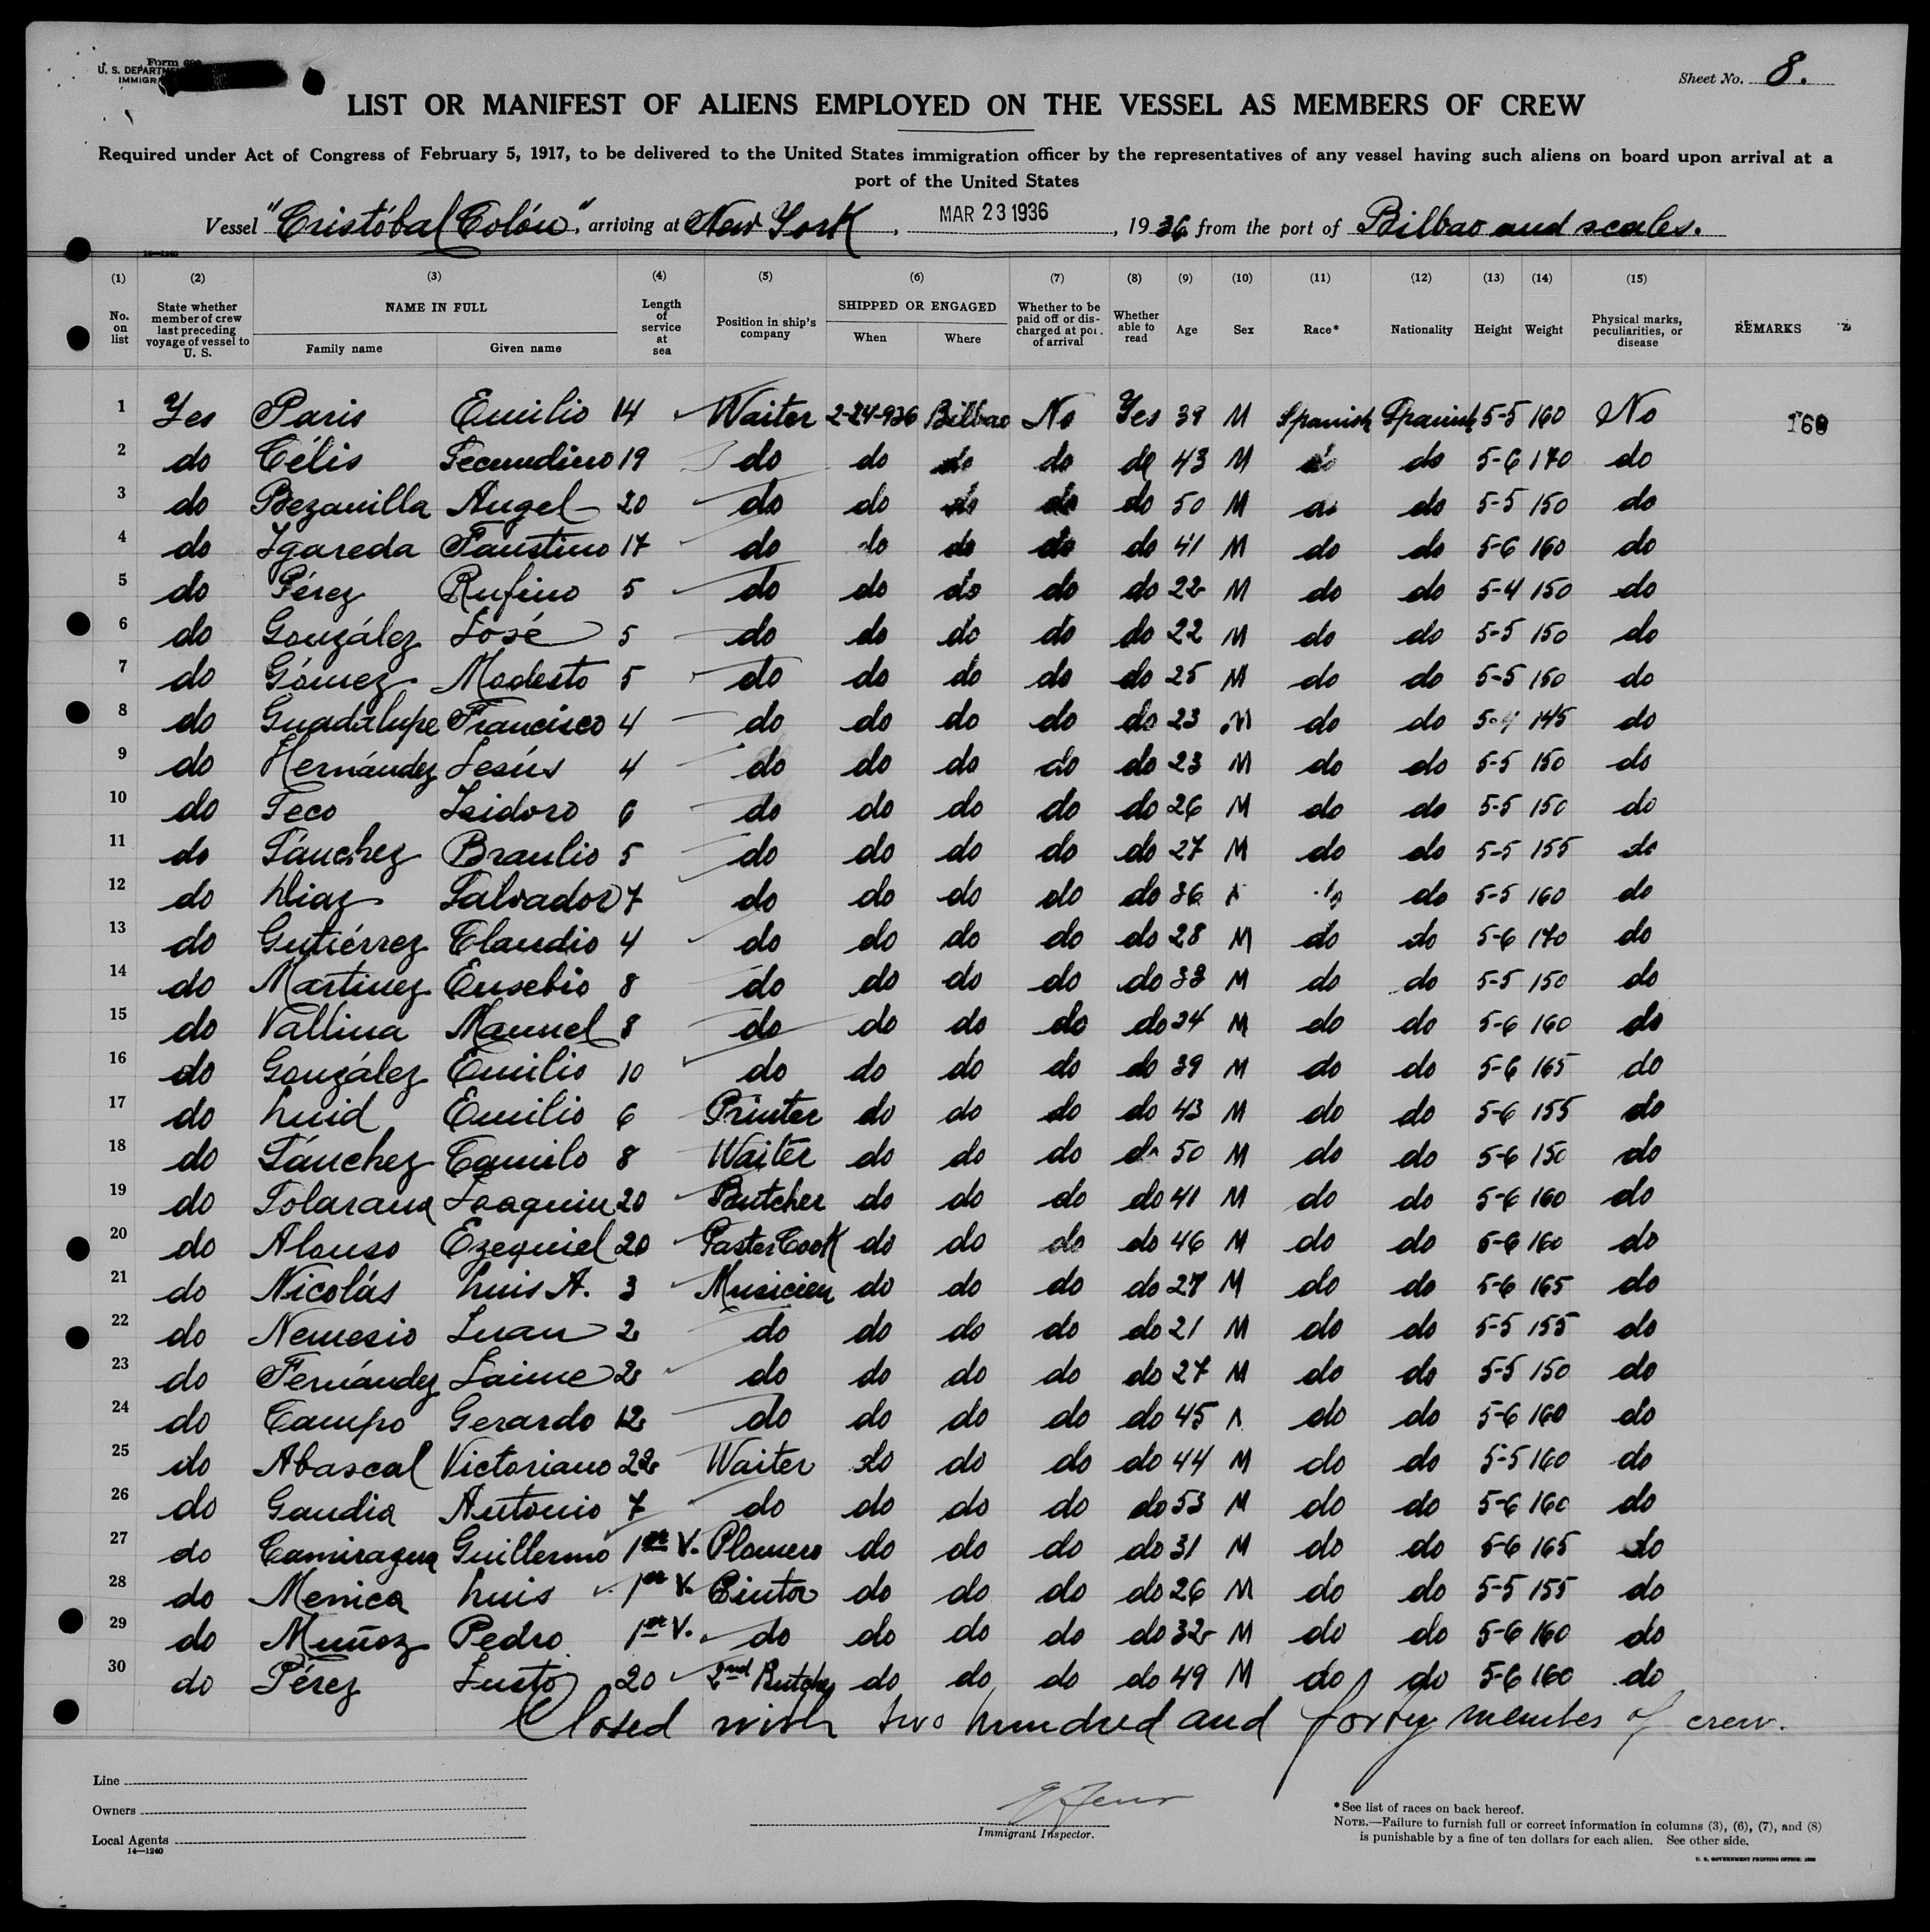 Form 680
U. S. DEPARTM
IMMIGRA
Sheet No. 8.
LIST OR MANIFEST OF ALIENS EMPLOYED ON THE VESSEL AS MEMBERS OF CREW
Required under Act of Congress of February 5, 1917, to be delivered to the United States immigration officer by the representatives of any vessel having such aliens on board upon arrival at a
port of the United States
Vessel "Cristóbal Colón", arriving at New York, MAR 23 1936, 1936 from the port of Bilbao and scales.
14—1240
(1) (2) (3) (4) (5) (6) (7) (8) (9) (10) (11) (12) (13) (14) (15)
No. on list State whether member of crew last preceding voyage of vessel to U. S. NAME IN FULL Family name Given name Length of service at sea Position in ship's company SHIPPED OR ENGAGED When Where Whether to be paid off or discharged at port of arrival Whether able to read Age Sex Race* Nationality Height Weight Physical marks, peculiarities, or disease REMARKS
1 Yes Paris Emilio 14 Waiter 2-24-936 Bilbao No Yes 39 M Spanish Spanish 5-5 160 No 160
2 do Célis Secundino 19 do do do do do 43 M do do 5-6 170 do
3 do Bezanilla Angel 20 do do do do do 50 M do do 5-5 150 do
4 do Igareda Faustino 17 do do do do do 41 M do do 5-6 160 do
5 do Pérez Rufino 5 do do do do do 22 M do do 5-4 150 do
6 do González José 5 do do do do do 22 M do do 5-5 150 do
7 do Gómez Modesto 5 do do do do do 25 M do do 5-5 150 do
8 do Guadalupe Francisco 4 do do do do do 23 M do do 5-4 145 do
9 do Hernández Jesús 4 do do do do do 23 M do do 5-5 150 do
10 do Seco Isidoro 6 do do do do do 26 M do do 5-5 150 do
11 do Sánchez Braulio 5 do do do do do 27 M do do 5-5 155 do
12 do Diaz Salvador 7 do do do do do 36 do 5-5 160 do
13 do Gutiérrez Claudio 4 do do do do do 28 M do do 5-6 170 do
14 do Martinez Eusebio 8 do do do do do 38 M do do 5-5 150 do
15 do Vallina Manuel 8 do do do do do 34 M do do 5-6 160 do
16 do González Emilio 10 do do do do do 39 M do do 5-6 165 do
17 do Luid Emilio 6 Printer do do do do 43 M do do 5-6 155 do
18 do Sánchez Camilo 8 Waiter do do do do 50 M do do 5-6 150 do
19 do Solarana Joaquin 20 Butcher do do do do 41 M do do 5-6 160 do
20 do Alonso Ezequiel 20 Paster Cook do do do do 46 M do do 5-6 160 do
21 do Nicolás Luis A. 3 Musicien do do do do 27 M do do 5-6 165 do
22 do Nemesio Juan 2 do do do do do 21 M do do 5-5 155 do
23 do Fernández Jaime 2 do do do do do 27 M do do 5-5 150 do
24 do Campo Gerardo 12 do do do do do 45 M do do 5-6 160 do
25 do Abascal Victoriano 22 Waiter do do do do 44 M do do 5-5 160 do
26 do Gandia Antonio 7 do do do do do 53 M do do 5-6 160 do
27 do Camiragua Guillermo 1er V. Plomero do do do do 31 M do do 5-6 165 do
28 do Menica Luis 1er V. Pintor do do do do 26 M do do 5-5 155 do
29 do Muñoz Pedro 1er V. do do do do do 32 M do do 5-6 160 do
30 do Pérez Justo 20 2nd Butcher do do do do 49 M do do 5-6 160 do
Closed with two hundred and forty membes of crew.
Line
Owners
Local Agents
14—1240
Immigrant Inspector.
*See list of races on back hereof.
NOTE.—Failure to furnish full or correct information in columns (3), (6), (7), and (8)
is punishable by a fine of ten dollars for each alien. See other side.
U. S. GOVERNMENT PRINTING OFFICE: